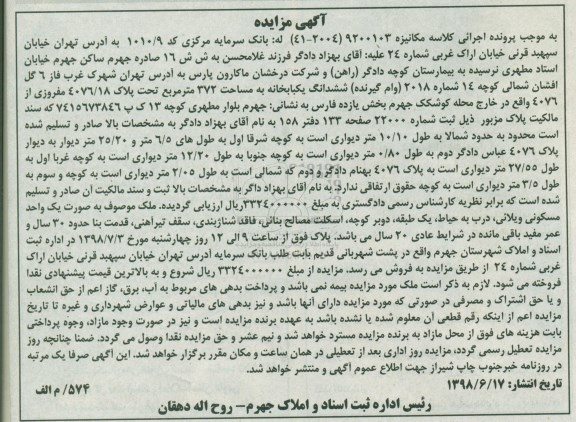 آگهی مزایده
به موجب پرونده اجرائی کلاسه مکانیزه ۹۲۰۰۱۰۳ (۲۰۰۴-۴۱) له: بانک سرمایه مرکزی کد ۱۰۱۰/۹ به آدرس تهران خیابان
سپهبد قرنی خیابان اراک غربی شماره ۲۴ علیه: آقای بهزاد دادگر فرزند غلامحسن به ش ش ۱۶ صادره جهرم ساکن جهرم خیابان
استاد مطهری نرسیده به بیمارستان کوچه دادگر (راهن) و شرکت درخشان ماکارون پارس به آدرس تهران شهرک غرب فاز ۶ گل
افشان شمالی کوچه ۱۴ شماره ۲۰۱۸ (وام گیرنده) ششدانگ یکبابخانه به مساحت ۳۷۲ مترمربع تحت پلاک ۴۰۷۶/۱۸ مفروزی از
۴۰۷۶ واقع در خارج محله کوشکک جهرم بخش یازده فارس به نشانی: جهرم بلوار مطهری کوچه ۱۳ ک پ ۷۴۱۵۶۷۳۸۴۶ که سند
مالکیت پلاک مزبور ذیل ثبت شماره ۲۲۰۰۰ صفحه ۱۳۳ دفتر ۱۵۸ به نام آقای بهزاد دادگر به مشخصات بالا صادر و تسلیم شده
است محدود به حدود شمالا به طول ۱۰/۱۰ متر دیواری است به کوچه شرقا اول به طول های ۶/۵ متر و ۲۵/۲۰ متر دیوار به دیوار
پلاک ۴۰۷۶ عباس دادگر دوم به طول ۰/۸۰ متر دیواری است به کوچه جنوبا به طول ۱۲/۲۰ متر دیواری است به کوچه غربا اول به
طول ۲۷/۵۵ متر دیواری است به پلاک ۴۰۷۶ بهنام دادگر و دوم که شمالی است به طول ۲/۰۵ متر دیواری است به کوچه و سوم به
طول ۳/۵ متر دیواری است به کوچه حقوق ارتفاقی ندارد. به نام آقای بهزاد داگر به مشخصات بالا ثبت و سند مالکیت آن صادر و تسلیم
شده است که برابر نظریه کارشناس رسمی دادگستری به مبلغ ۳۳۲۴۰۰۰۰۰۰ریال ارزیابی گردیده. ملک موصوف به صورت یک واحد
مسکونی ویلائی، درب به حیاط، یک طبقه، دوبر کوچه، اسکلت مصالح بنائی، فاقد شناژبندی، سقف تیرآهنی، قدمت بنا حدود ۳۰ سال و
عمر مفید باقی مانده در شرایط عادی ۲۰ سال می باشد. پلاک فوق از ساعت ۹ الی ۱۲ روز چهارشنبه مورخ ۱۳۹۸/۷/۳ در اداره ثبت
اسناد و املاک شهرستان جهرم واقع در پشت شهربانی قدیم بابت طلب بانک سرمایه آدرس تهران خیابان سپهبد قرنی خیابان اراک
غربی شماره ۲۴ از طریق مزایده به فروش می رسد. مزایده از مبلغ ۳۳۲۴۰۰۰۰۰۰ ریال شروع و به بالاترین قیمت پیشنهادی نقدا
فروخته می شود. لازم به ذکر است ملک مورد مزایده بیمه نمی باشد و پرداخت بدهی های مربوط به آب، برق، گاز اعم از حق انشعاب
و یا حق اشتراک و مصرفی در صورتی که مورد مزایده دارای آنها باشد و نیز بدهی های مالیاتی و عوارض شهرداری و غیره تا تاریخ
مزایده اعم از اینکه رقم قطعی آن معلوم شده یا نشده باشد به عهده برنده مزایده است و نیز در صورت وجود مازاد، وجوه پرداختی
بابت هزینه های فوق از محل مازاد به برنده مزایده مسترد خواهد شد و نیم عشر و حق مزایده نقدا وصول می گردد. ضمنا چنانچه روز
مزایده تعطیل رسمی گردد، مزایده روز اداری بعد از تعطیلی در همان ساعت و مکان مقرر برگزار خواهد شد. این آگهی صرفا یک مرتبه
در روزنامه خبرجنوب چاپ شیراز جهت اطلاع عموم آگهی و منتشر خواهد شد.
تاریخ انتشار: ۱۳۹۸/۶/۱۷
۵۷۴/ م الف
رئیس اداره ثبت اسناد و املاک جهرم- روح اله دهقان